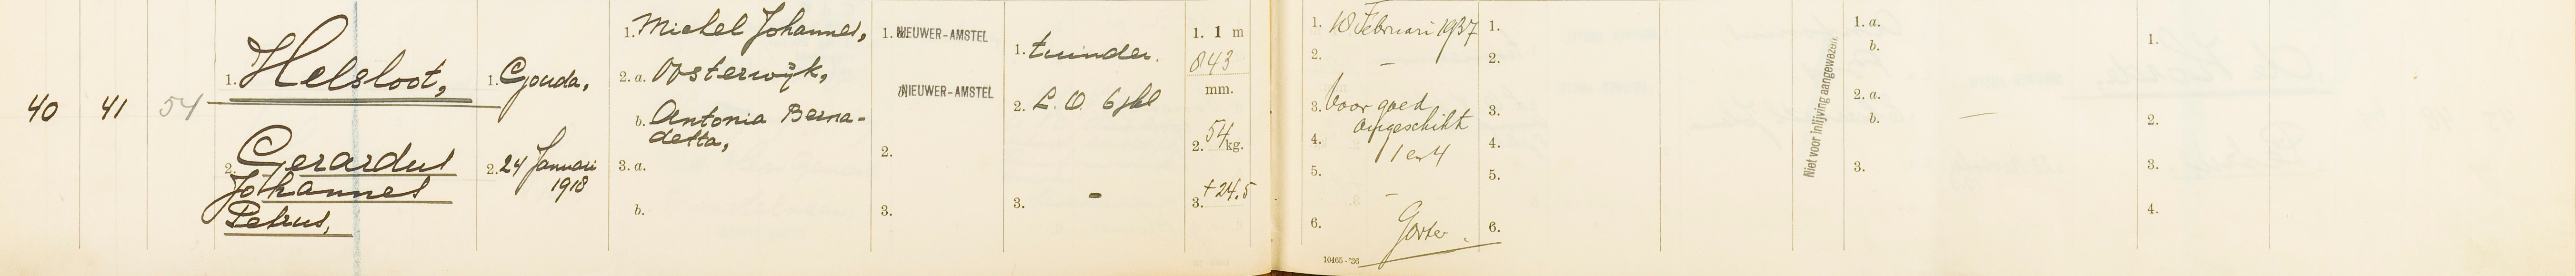 40 41 54
1. Helsloot,
2. Gerardus
Johannes
Petrus,
1. Gouda,
2. 24 Januari
1918
1. Michel Johannes,
2. a. Oosterwijk,
b. Antonia Berna-
detta,
3. a.
b.
1. NIEUWER-AMSTEL
NIEUWER-AMSTEL
2.
3.
1. tuinder.
2. L.O. 6 jkl
3. -
1. 1 m
843
mm.
2. 54 kg.
3. +24.5
1. 18 Februari 1937
2. -
3. Voor goed
ongeschikt
4. 1 en 4
5. -
6. Gorter.
10465-'36
1.
2.
3.
4.
5.
6.
Niet voor inlijving aangewezen.
1. a.
b.
2. a.
b. —
3.
1.
2.
3.
4.